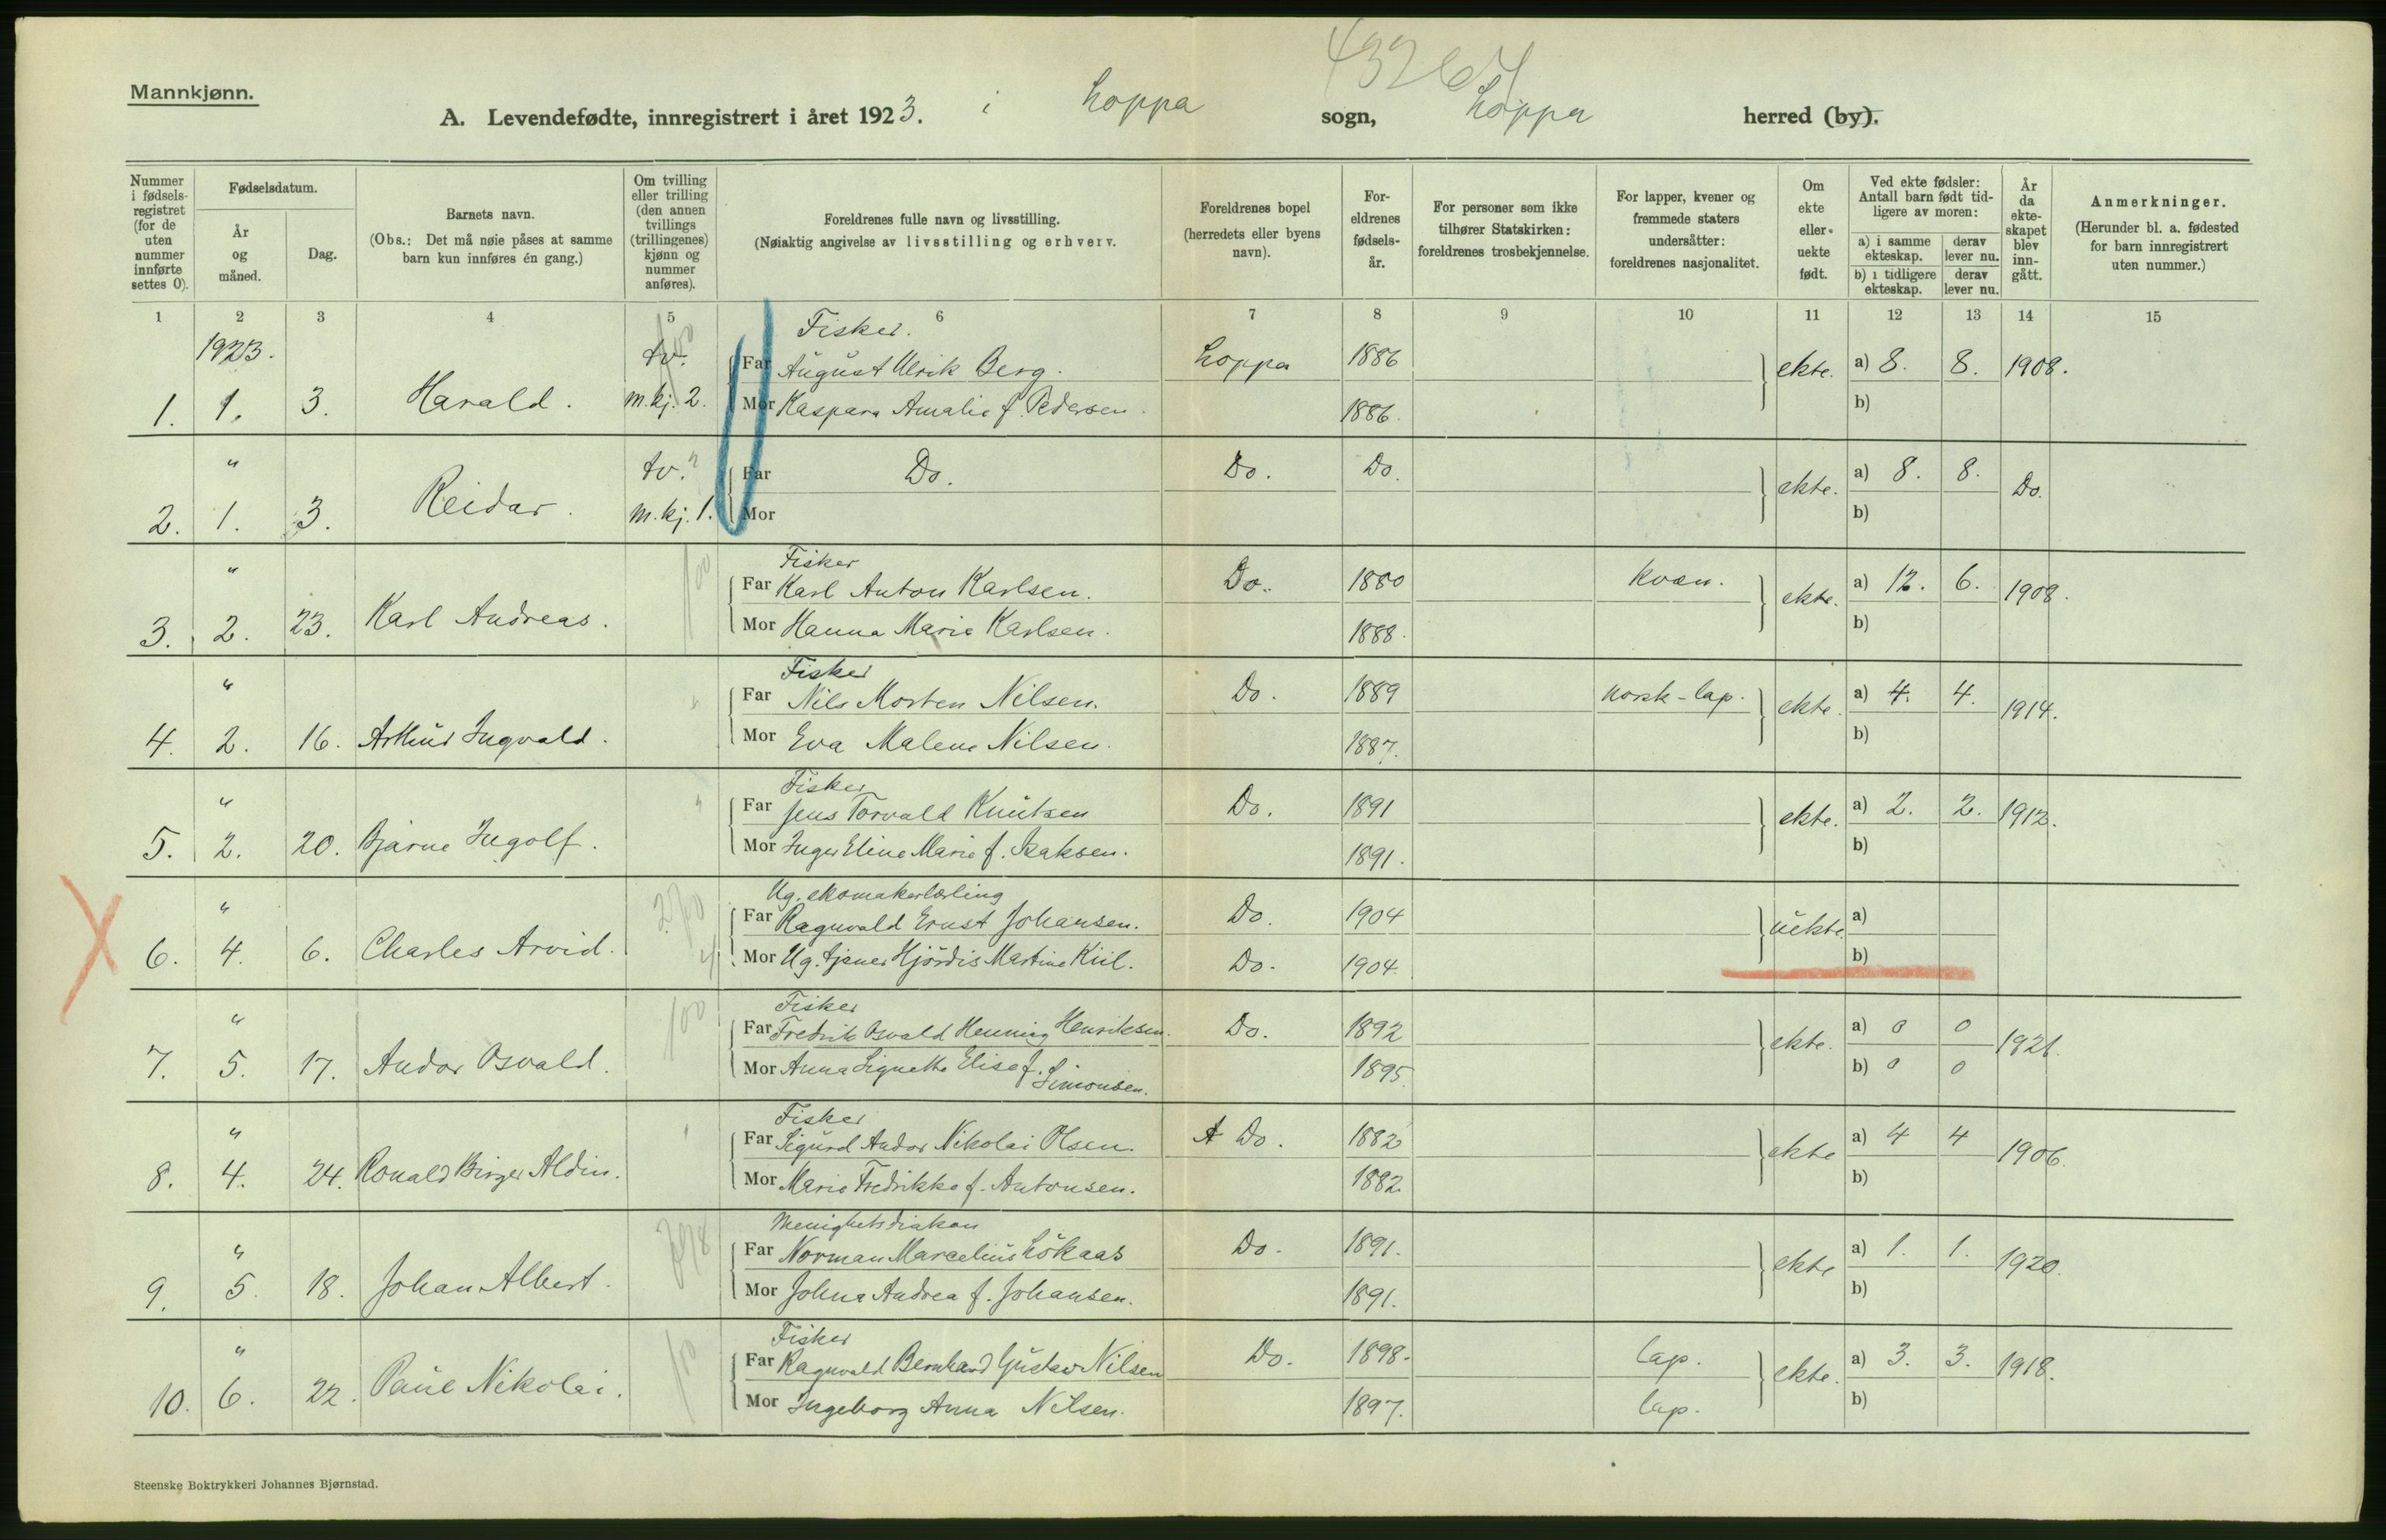 43267
Mannkjønn.
A. Levendefødte, innregistrert i året 1923. i Loppa sogn, Loppa herred (by).
Nummer i fødselsregistret (for de uten nummer innførte settes 0).
Fødselsdatum.
År og måned.
Dag.
Barnets navn.
(Obs.: Det må nøie påses at samme barn kun innføres én gang.)
Om tvilling eller trilling (den annen tvillings (trillingenes) kjønn og nummer anføres).
Foreldrenes fulle navn og livsstilling.
(Nøiaktig angivelse av livsstilling og erhverv.
Foreldrenes bopel (herredets eller byens navn).
Foreldrenes fødselsår.
For personer som ikke tilhører Statskirken: foreldrenes trosbekjennelse.
For lapper, kvener og fremmede staters undersåtter: foreldrenes nasjonalitet.
Om ekte eller uekte født.
Ved ekte fødsler: Antall barn født tidligere av moren:
a) i samme ekteskap. derav lever nu.
b) i tidligere ekteskap. derav lever nu.
År da ekteskapet blev inngått.
Anmerkninger.
(Herunder bl. a. fødested for barn innregistrert uten nummer.)
1 2 3 4 5 6 7 8 9 10 11 12 13 14 15
1923. tv. Fisker.
Far August Ulrik Berg. Loppa 1886 ekte. a) 8. 8. 1908.
1. 1. 3. Harald. m.kj. 2. Mor Kaspara Amalie f. Pedersen. 1886. b)
" tv. Far Do. Do. Do. ekte. a) 8. 8. Do.
2. 1. 3. Reidar. m.kj. 1. Mor b)
" Fisker
Far Karl Anton Karlsen. Do. 1880 kvæn. ekte. a) 12. 6. 1908.
3. 2. 23. Karl Andreas. Mor Hanna Marie Karlsen. 1888. b)
" Fisker
Far Nils Morten Nilsen. Do. 1889 norsk-lap. ekte. a) 4. 4. 1914.
4. 2. 16. Arthur Ingvald. Mor Eva Malene Nilsen. 1887. b)
" Fisker
Far Jens Torvald Knutsen Do. 1891 ekte. a) 2. 2. 1912.
5. 2. 20. Bjarne Ingolf. Mor Inger Eline Marie f. Isaksen. 1891. b)
" Ug. skomakerlærling
Far Ragnvald Ernst Johansen. Do. 1904 uekte. a)
6. 4. 6. Charles Arvid. Mor Ug. tjener Hjördis Martine Kiil. Do. 1904. b)
" Fisker
Far Fredrik Osvald Henning Henriksen. Do. 1892 ekte. a) 0 0 1921.
7. 5. 17. Andor Osvald. Mor Anna Signethe Elise f. Simonsen. 1895. b) 0 0
" Fisker
Far Sigurd Andor Nikolai Olsen. Do. 1882 ekte a) 4 4 1906.
8. 4. 24. Ronald Birger Aldin. Mor Marie Fredrikke f. Antonsen. 1882. b)
" Menighetsdiakon
Far Norman Marcelius Lökaas Do. 1891. ekte a) 1. 1. 1920.
9. 5. 18. Johan Albert. Mor Johna Andrea f. Johansen. 1891. b)
" Fisker
Far Ragnvald Bernhard Gustav Nilsen Do. 1898. lap. ekte. a) 3. 3. 1918.
10. 6. 22. Paul Nikolai. Mor Ingeborg Anna Nilsen. 1897. lap. b)
Steenske Boktrykkeri Johannes Bjørnstad.